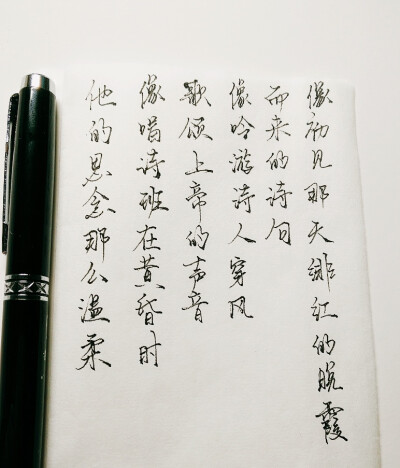 像初见那天绯红的晚霞
而来的诗句
像吟游诗人穿风
歌颂上帝的声音
像唱诗班在黄昏时
他的思念那么温柔